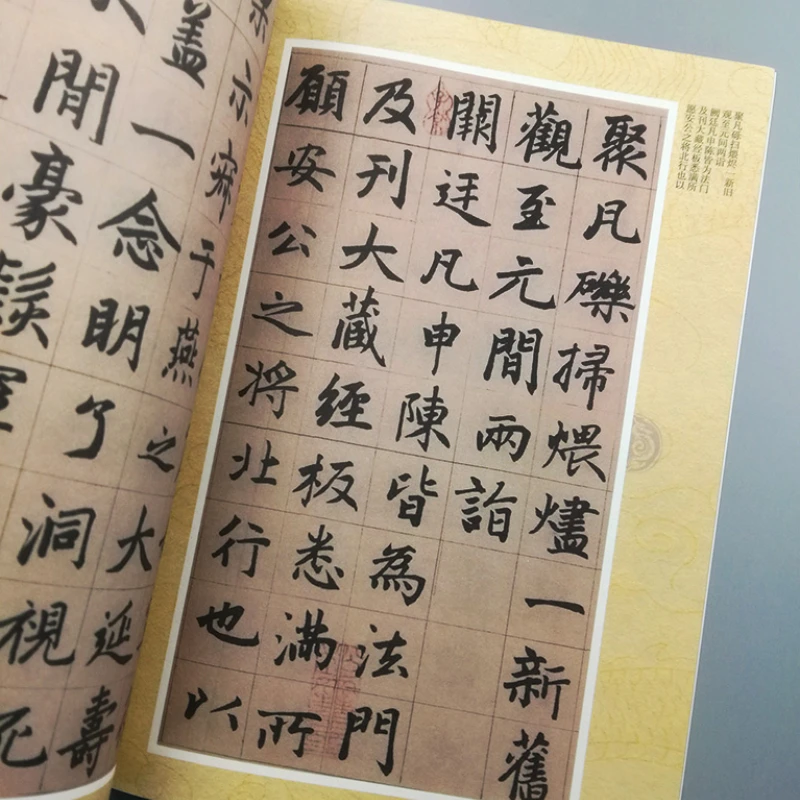 聚凡砾扫煨烬一新旧
观至元间两诣
阙廷凡申陈皆为法门
及刊大藏经板悉满所
愿安公之将北行也以
聚凡礫掃煨燼一新舊
觀至元間兩詣
闕廷凡申陳皆為法門
及刊大藏經板悉滿所
願安公之將北行也以
示寂于燕之大延壽
盖一念明了洞視死
間豪髮